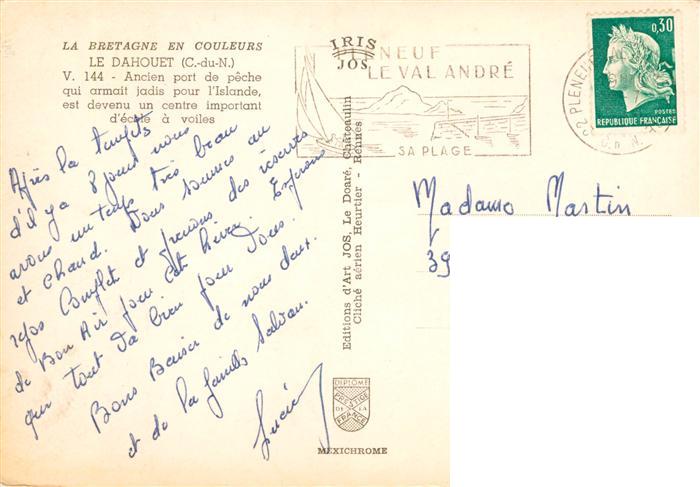 LA BRETAGNE EN COULEURS
LE DAHOUET (C.-du-N.)
V. 144 - Ancien port de pêche
qui armait jadis pour l'Islande,
est devenu un centre important
d'école à voiles
IRIS
JOS
NEUF
LE VAL ANDRÉ
SA PLAGE
22 PLENEUF
C. DU N.
0,30
POSTES
REPUBLIQUE FRANÇAISE
Après la tempête
d'il y a 8 jours nous
avons un temps très beau
et chaud. Nous sommes au
repos Complet et prenons des réserves
de Bon Air pour cet hiver. Espérons
que tout va bien pour Vous.
Bons Baisers de nous deux
et de la famille
Lucie
Editions d'Art JOS, Le Doaré, Châteaulin
Cliché aérien Heurtier - Rennes
DIPLOME
PRESTIGE
DE LA
FRANCE
MEXICHROME
Madame Martin
39